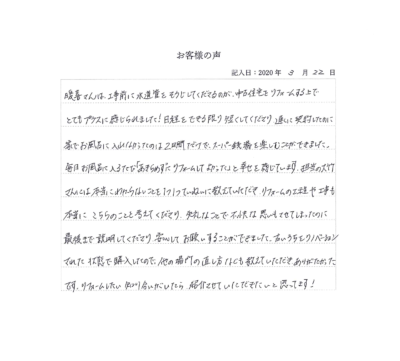 お客様の声
記入日：2020年 3月 22日
暖喜さんは、工事前に水道管をそうじしてくださるのが、中古住宅をリフォームする上で
とてもプラスに感じられました！日程もできる限り短くしてくださり
家でお風呂に入れなかったのは2日間だけで、スーパー銭湯を楽しむことができました。
毎日お風呂に入るたびリフォームしてよかった…と幸せを感じています。担当の
さんには本当にわからないことを1つ1つていねいに教えていただき リフォームの工程や工事も
本当に こちらのことを考えてくださり、失礼なことで不快な思いもさせてしまったのに
最後まで説明してくださり 安心してお願いすることができました。おうちをリノベーション
された状態で購入したので、他の場所の直し方なども教えていただきありがたかった
です。リフォームしたい知り合いがいたら、紹介させていただきたいと思ってます！